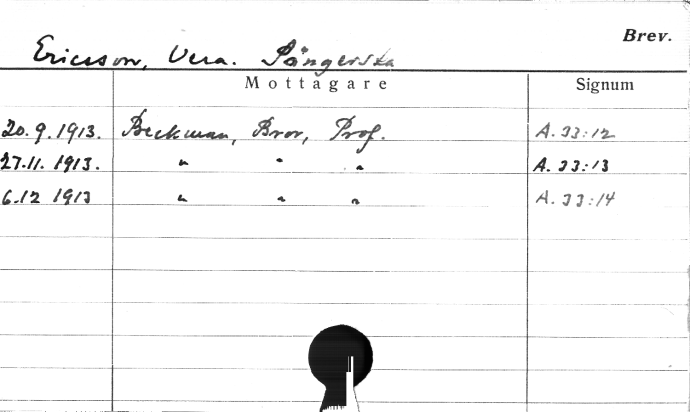 Brev.
Ericsson, Vera. Sångerska
Mottagare Signum
20.9.1913. Beckman, Bror, Prof. A.33:12
27.11.1913. " " " A.33:13
6.12 1913 " " " A.33:14